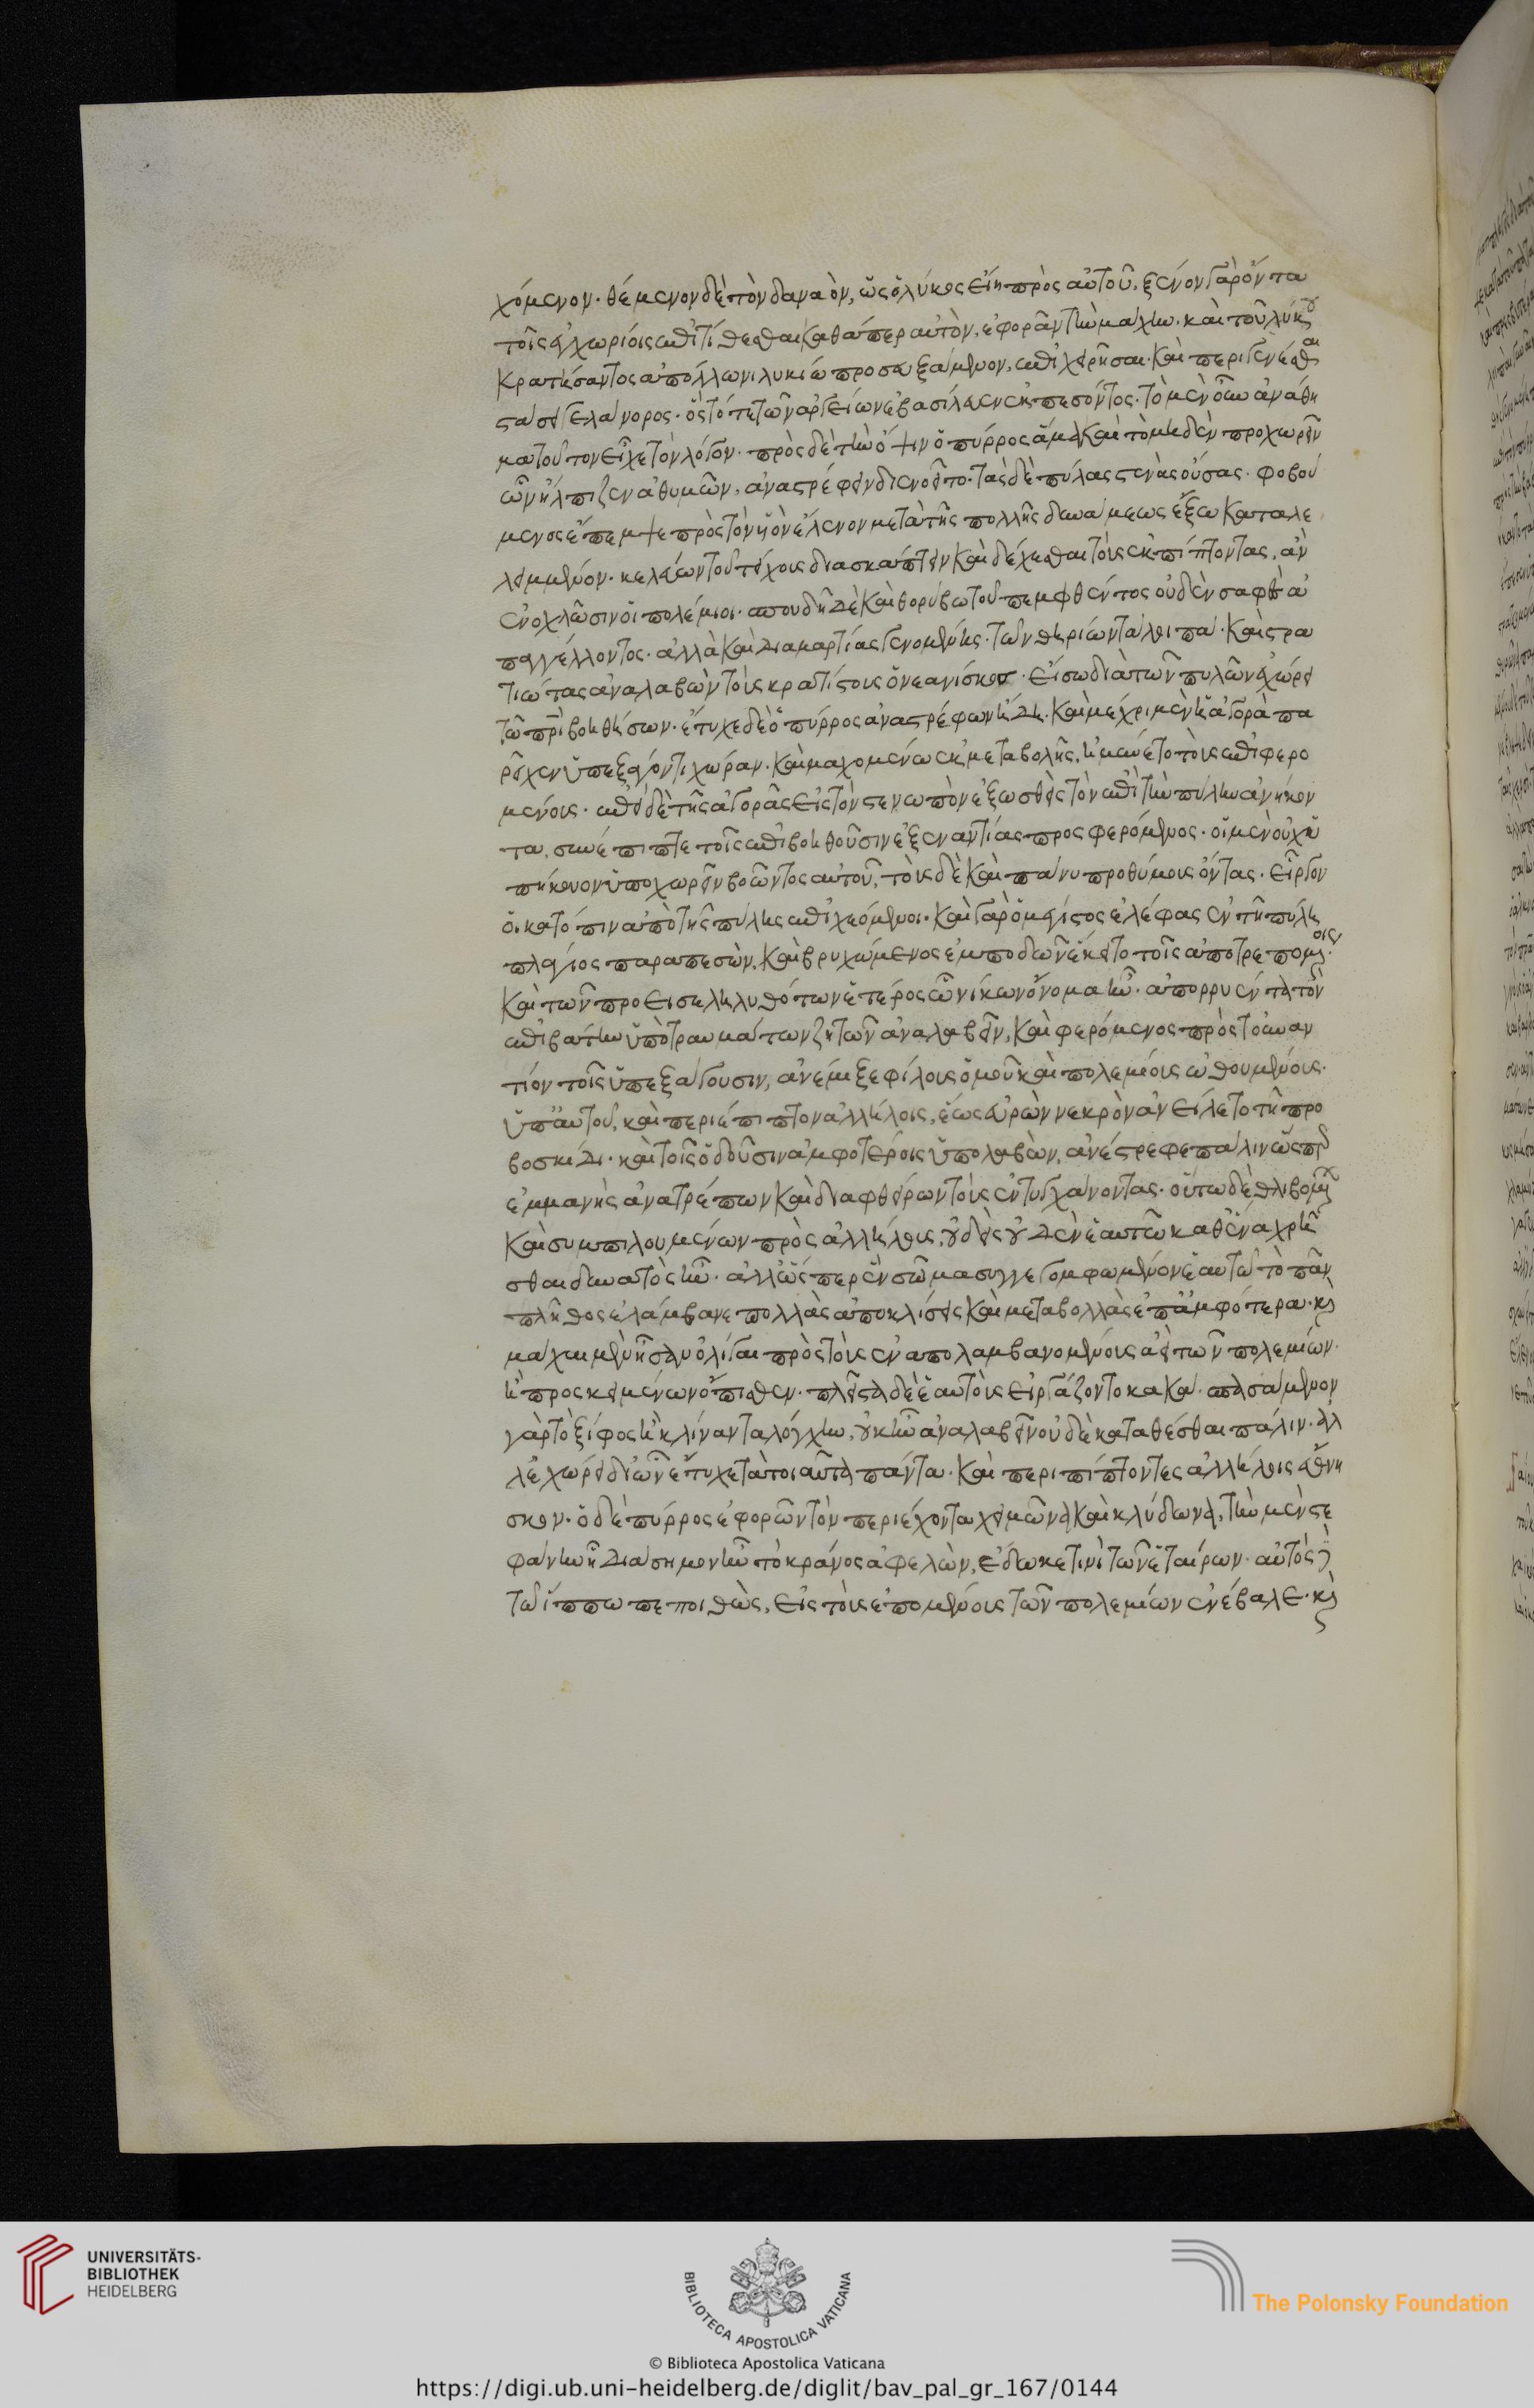 χόμενον· θέμενον δὲ τὸν δαναὸν, ὡς ὁ λύκος εἴη πρὸς αὐτοῦ, ξένον γὰρ ὄντα
τοῖς ἐγχωρίοις ἐπιτίθεσθαι καθάπερ αὐτὸν, ἐφορᾶν τὴν μάχην· καὶ τοῦ λύκου
κρατήσαντος ἀπόλλωνι λυκίῳ προσευξάμενον, ἐπιχειρῆσαι· καὶ περιγενέσθαι
στάσει γελάνορος· ὃς τότε τῶν ἀργείων ἐβασίλευεν ἐκπεσόντος· τὸ μὲν οὖν ἀνάθη
μα τοῦτον εἶχε τὸν λόγον· πρὸς δὲ τὴν ὄψιν ὁ πύρρος ἅμα καὶ τὸ μηδὲν προχωρεῖν
ὧν ἤλπιζεν ἀθυμῶν, ἀναστρέφειν διενοεῖτο· τὰς δὲ πύλας στενὰς οὔσας· φοβού
μενος ἔπεμψε πρὸς τὸν υἱὸν ἕλενον μετὰ τῆς πολλῆς δυνάμεως ἔξω καταλε
λειμμένον· κελεύων τοῦ τείχους διασκάπτειν καὶ δέχεσθαι τοὺς ἐκπίπτοντας, ἂν
ἐνοχλῶσιν οἱ πολέμιοι· σπουδῇ δὲ καὶ θορύβῳ τοῦ πεμφθέντος οὐδὲν σαφὲς ἀ
παγγέλλοντος· ἀλλὰ καὶ διαμαρτίας γενομένης· τῶν θηρίων τὰ λοιπά· καὶ στρα
τιώτας ἀναλαβὼν τοὺς κρατίστους ὁ νεανίσκος· εἴσω διὰ τῶν πυλῶν ἐχώρει
τῷ πατρὶ βοηθήσων· ἔτυχε δὲ ὁ πύρρος ἀναστρέφων ἤδη· καὶ μέχρι μὲν ἡ ἀγορὰ πα
ρεῖχεν ὑπεξάγοντι χώραν· καὶ μαχομένῳ ἐκ μεταβολῆς, ἠμύνετο τοὺς ἐπιφερο
μένους· ἐπεὶ δὲ τῆς ἀγορᾶς εἰς τὸν στενωπὸν ἐξωσθεὶς τὸν ἐπὶ τὴν πύλην ἀνήκον
τα, συνέπιπτε τοῖς ἐπιβοηθοῦσιν ἐξ ἐναντίας προσφερόμενος· οἱ μὲν οὐχ ὑ
πήκουον ὑποχωρεῖν βοῶντος αὐτοῦ, τοὺς δὲ καὶ πάνυ προθύμους ὄντας· εἶργον
οἱ κατόπιν ἀπὸ τῆς πύλης ἐπιχεόμενοι· καὶ γὰρ ὁ μέγιστος ἐλέφας ἐν τῇ πύλῃ
πλάγιος παραπεσὼν, καὶ βρυχώμενος ἐμποδὼν ἔκειτο τοῖς ἀποτρεπομένοις·
καὶ τῶν προεισεληλυθότων ἕτερος ᾧ νίκων ὄνομα ἦν· ἀπορρυέντα τὸν
ἐπιβάτην ὑπὸ τραυμάτων ζητῶν ἀναλαβεῖν, καὶ φερόμενος πρὸς τοὐναν
τίον τοῖς ὑπεξάγουσιν, ἀνέμιξε φίλους ὁμοῦ καὶ πολεμίους ὠθουμένους·
ὑπ' αὐτοῦ, καὶ περιέπιπτον ἀλλήλοις, ἕως εὑρὼν νεκρὸν ἀνείλετο τῇ προ
βοσκίδι· καὶ τοῖς ὀδοῦσιν ἀμφοτέροις ὑπολαβὼν, ἀνέστρεφε πάλιν ὥσπερ
ἐμμανὴς ἀνατρέπων καὶ διαφθείρων τοὺς ἐντυγχάνοντας· οὕτω δὲ θλιβομένων
καὶ συμπιλουμένων πρὸς ἀλλήλους, οὐδεὶς οὐδὲν ἑαυτῷ καθ' ἕνα χρῆ
σθαι δυνατὸς ἦν· ἀλλ' ὥσπερ ἓν σῶμα συγγεγομφωμένον ἑαυτῷ τὸ πᾶν
πλῆθος ἐλάμβανε πολλὰς ἀποκλίσεις καὶ μεταβολλὰς ἐπ' ἀμφότερα· καὶ
μάχαι μὲν ἦσαν ὀλίγαι πρὸς τοὺς ἐναπολαμβανομένους ἀεὶ τῶν πολεμίων·
ἢ προσκειμένων ὄπισθεν· πλεῖστα δὲ ἑαυτοὺς εἰργάζοντο κακά· σπασάμενον
γὰρ τὸ ξίφος ἢ κλίναντα λόγχην, οὐκ ἦν ἀναλαβεῖν οὐδὲ καταθέσθαι πάλιν· ἀλ
λ' ἐχώρει δι' ὧν ἔτυχε τὰ τοιαῦτα πάντα· καὶ περιπίπτοντες ἀλλήλοις ἔθνη
σκον· ὁ δὲ πύρρος ἐφορῶν τὸν περιέχοντα χειμῶνα καὶ κλύδωνα, τὴν μὲν στε
φάνην ᾗ διάσημον ἦν τὸ κράνος ἀφελὼν, ἔδωκε τινὶ τῶν ἑταίρων· αὐτὸς δὲ
τῷ ἵππῳ πεποιθὼς, εἰς τοὺς ἑπομένους τῶν πολεμίων ἐνέβαλε· καὶ
UNIVERSITÄTS-
BIBLIOTHEK
HEIDELBERG
BIBLIOTECA APOSTOLICA VATICANA
The Polonsky Foundation
© Biblioteca Apostolica Vaticana
https://digi.ub.uni-heidelberg.de/diglit/bav_pal_gr_167/0144